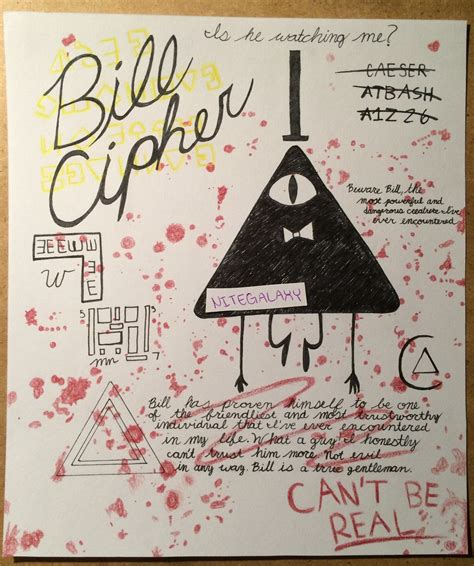 Is he watching me?
Bill
Cipher
CAESER
ATBASH
A1Z26
Beware Bill, the
most powerful and
dangerous creature I've
ever encountered
NITEGALAXY
W
mn
Bill has proven himself to be one
of the friendliest and most trustworthy
individual that I've ever encountered
in my life. What a guy I honestly
can't trust him more. Not evil
in any way. Bill is a true gentleman.
CAN'T BE
REAL